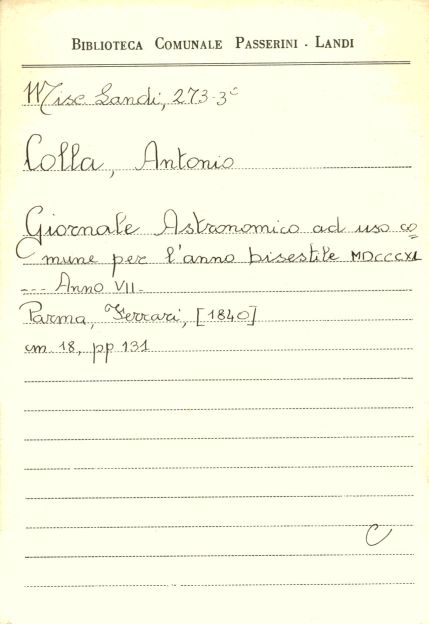 BIBLIOTECA COMUNALE PASSERINI - LANDI
Misc Landi, 273-3°
Colla, Antonio
Giornale Astronomico ad uso co=
mune per l'anno bisestile MDCCCXL
--- Anno VII -
Parma, Ferrari, [1840]
cm. 18, pp 131
C